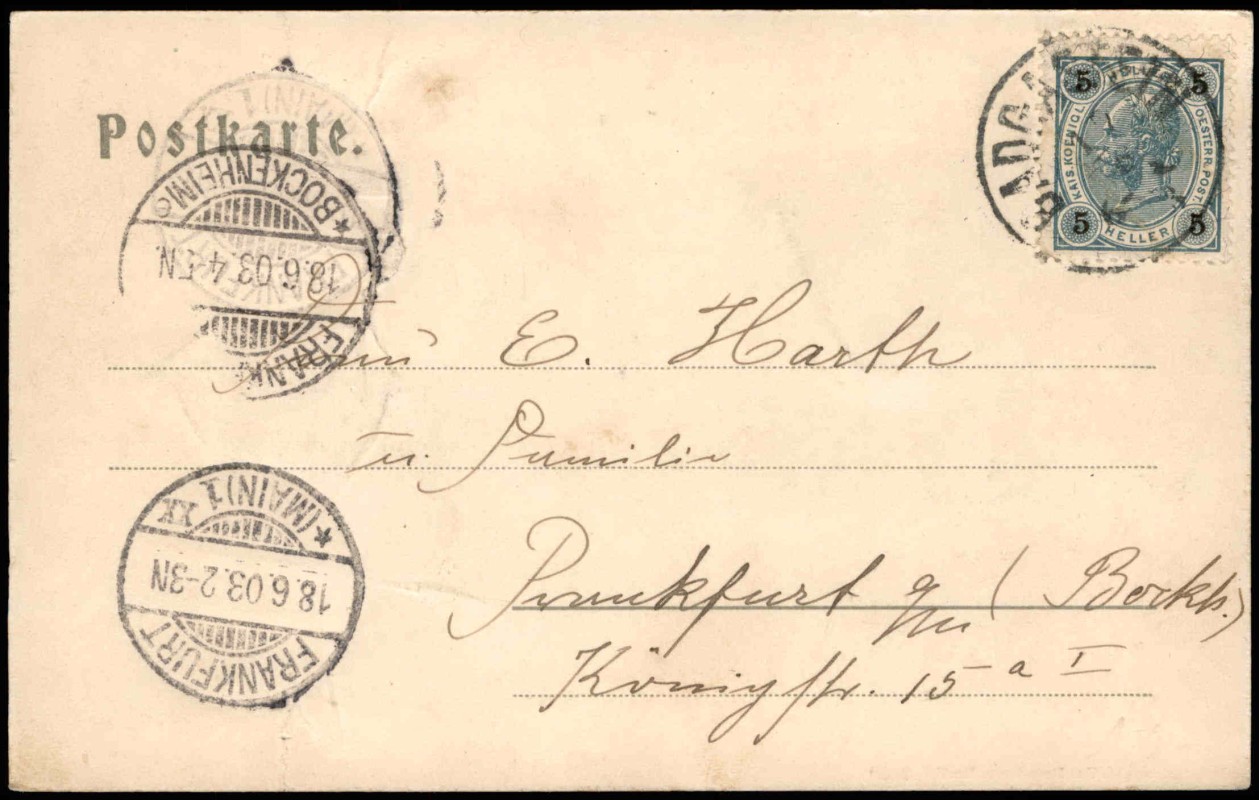 Postkarte.
BADGASTEIN
5 HELLER 5
KAIS. KOENIGL.
OESTERR. POST.
5 HELLER 5
(MAIN) 1
FRANKFURT
* BOCKENHEIM
18.6.03.4-5N.
FRANKF
E. Harth
u. Familie
Frankfurt a/M (Bockh.)
Königstr. 15 a I
* (MAIN) 1 XX
18.6.03.2-3N
FRANKFURT